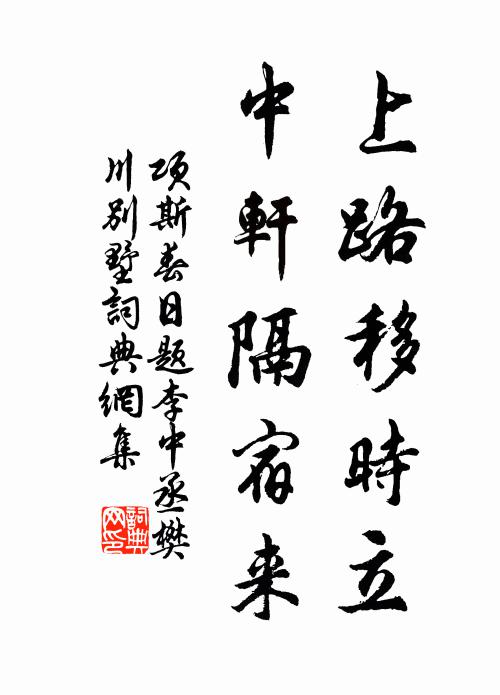 上路移時立
中軒隔宿来
項斯春日題李中丞樊
川別墅詞典網集
詞典网印